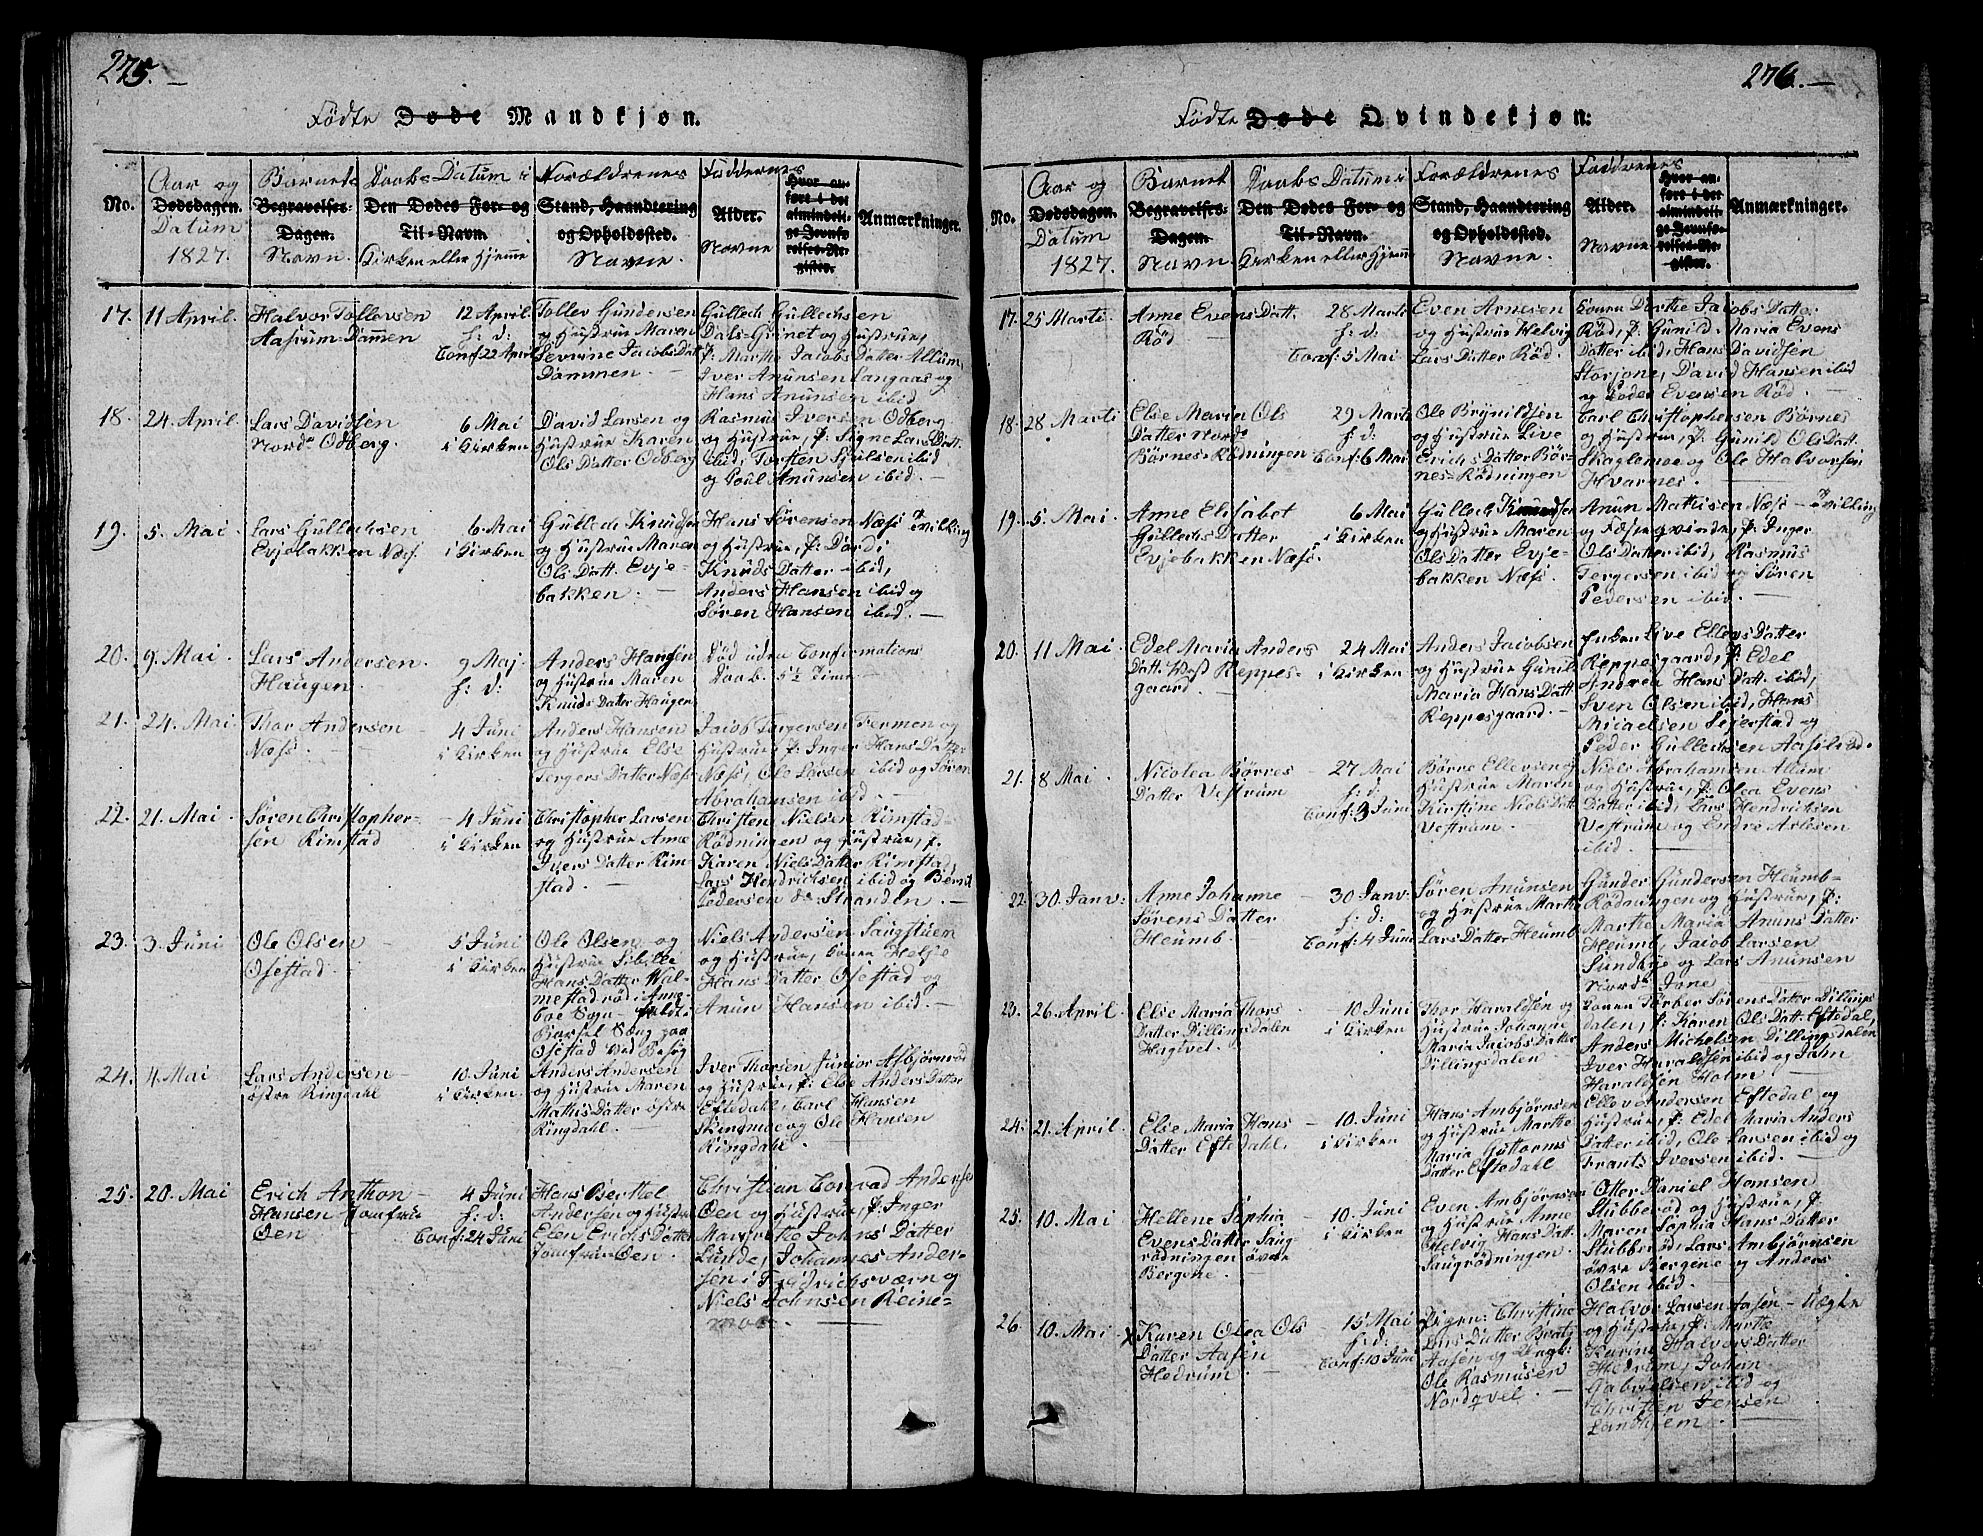 275.
Födte Døde Mandkjøn.
No.
Aar og
Dødsdagen.
Datum
1827.
Barnets
Begravelses-
Dagen.
Navn.
Daabs Datum i
Den Dødes For- og
Til-Navn.
Kirken eller Hjemme
Forældrenes
Stand, Haandtering
og Opholdssted.
Navne.
Faddernes
Alder.
Navne
Hvor an-
ført i det
almindeli-
ge Jevnfø-
relses-Re-
gister.
Anmærkninger.
17. 11 April.
Halvor Tollevsen
Aasrum Dammen
12 April
h: d:
Conf: 22 April
Toller Gundersen
og Hustrue Maren
Severine Jacobs Datt
Dammen.
Gullech Gullechsen
Dals-Grinet og Hustrue,
P. Marthe Jacobs Datter Allum,
Iver Anunsen Langaas og
Hans Anunsen ibid
18. 24. April.
Lars Davidsen
Nord Odberg.
6 Mai
i Kirken
David Larsen og
Hustrue Karen
Ols Datter Odberg
Rasmus Iversen Odberg
og Hustrue, P: Signe Lars Datt.
ibid, Torsten Sjulsen ibid
og Poul Anunsen ibid.
19. 5. Mai
Lars Gullechsen
Evjebakken Næss.
6 Mai
i Kirken
Gullech Knudsen
og Hustrue Maren
Ols Datt. Evje-
bakken.
Hans Sørensen Næss
og Hustrue, P: Dordi
Knuds Datter ibid,
Anders Hansen ibid og
Søren Hansen ibid.
Tvilling
20. 9. Mai
Lars Andersen
Haugen.
9 Maj
h: d:
Anders Hansen
og Hustrue Maren
Knuds Datter Haugen
Død uden Confirmations
Daab. 5½ Time
21. 24. Mai
Thor Andersen
Næss.
4 Juni
i Kirken
Anders Hansen
og Hustrue Else
Tergers Datter Næss
Jacob Tergersen Fermen og
Hustrue, P: Inger Hans Datter
Næss, Ole Larsen ibid og Søren
Abrahamsen ibid.
22. 21. Mai
Søren Christopher-
sen Rimstad
4 Juni
i Kirken
Christopher Larsen
og Hustrue Anne
Ivers Datter Rim-
stad.
Christen Nielsen Rimstad-
Rødningen og Hustrue, P.
Karen Niels Datter Rimstad,
Lars Hendrichsen ibid og Bernt
Pedersen de Stranden.
23. 3. Juni
Ole Olsen
Ofestad
5 Juni
i Kirken
Ole Olsen og
Hustrue Sibille
Hans Datter Wal-
mestadrød i Anne-
boe Sogn - faldt i
Barsel Seng paa
Ofestad ved Besøg
Niels Andersen Saugstuen
og Hustrue, Konen Helje
Hans Datter Ofestad og
Anun Hansen ibid.
24. 4. Mai
Lars Andersen
østre Ringdahl
10 Juni
i Kirken
Anders Andersen
og Hustrue Maren
Mathis Datter østre
Ringdahl.
Iver Thorsen Junior Asbjørnrød
og Hustrue, P: Else Anders Datter
Eftedahl, Carl Hansen
Skinmoe og Ole Hansen
Ringdahl.
25. 20. Mai
Erich Anthon
Hansen Jomfrue
Øen
4 Juni
h: d:
Conf: 24 Juni
Hans Berthel
Andersen og Hustrue
Elen Erichs Datter
Jomfrue Øen.
Christian Conrad Andersen
Øen og Hustrue, P: Inger
Margrethe Johns Datter
Lunde, Johannes Ander-
sen i Fridrichsværn og
Niels Johnsen Reine-
moe.
276.
Födte Døde Qvindekjøn:
No.
Aar og
Dødsdagen.
Datum
1827.
Barnet
Begravelses-
Dagen.
Navn
Daabs Datum i
Den Dødes For- og
Til-Navn.
Kirken eller Hjemme
Forældrenes
Stand, Haandtering
og Opholdssted.
Navne.
Faddrenes
Alder.
Navne
Hvor an-
ført i det
almindeli-
ge Jevnfø-
relses-Re-
gister.
Anmærkninger.
17. 25 Marti.
Anne Evens Datt.
Rød
28 Marti
h: d:
Conf: 5 Mai
Even Arnesen
og Hustrue Helvig
Lars Datter Rød.
Konen Dorthe Jacobs Datter
Rød, P: Gunild Maria Evens
Datter ibid, Hans Davidsen
Storjone, David Hansen ibid
og Peder Evensen Rød.
18. 28 Marti
Else Maria Ols
Datter Nord
Børnes-Rødningen
29 Marti
h: d:
Conf: 6 Mai
Ole Brynildsen
og Hustrue Live
Erichs Datter Bør-
nes-Rødningen
Carl Christophersen Børnes
og Hustrue, P: Gunild Ols Datt.
Skaglemoe og Ole Halvorsen
Hvarnes.
19. 5. Mai.
Anne Elisabet
Gullechs Datter
Evjebakken Næss.
6 Mai
i Kirken
Gullech Knudsen
og Hustrue Maren
Ols Datter Evje-
bakken Næss.
Anun Mathisen Næss
og Fæsteqvinde, P: Inger
Ols Datter ibid, Rasmus
Tergersen ibid og Søren
Pedersen ibid.
Tvilling
20. 11 Mai
Edel Maria Anders
Datt. West Reppes-
gaard.
24 Mai
i Kirken
Anders Jacobsen
og Hustrue Gunil
Maria Hans Datt
Reppesgaard.
Enken Live Ellevs Datter
Reppesgaard, P: Edel
Andrea Hans Datt. ibid,
Sven Olsen ibid, Hans
Micaelsen Seierstad og
Peder Gullechsen Aasilrød.
21. 8 Mai
Nicolea Børres
Datter Vestrum
27 Mai
h: d:
Conf: 3 Juni
Børre Ellevsen og
Hustrue Maren
Kirstine Niels Datt
Vestrum
Niels Abrahamsen Allum
og Hustrue, P. Olea Evens
Datter ibid, Lars Hendrichsen
Vestrum og Endre Aslesen
ibid.
22. 30. Janv:
Anne Johanne
Sørens Datter
Heumb.
30 Janv.
h: d:
Conf: 4 Juni
Søren Anunsen
og Hustrue Marthe
Lars Datter Heumb
Gunder Gundersen Heumb-
Rødningen og Hustrue, P:
Marthe Maria Anuns Datter
Heumb, Jacob Larsen
Sundbye og Lars Anunsen
Nord Jone
23. 26. April.
Else Maria Thors
Datter Dillingsdalen
Hagtvet.
10 Juni
i Kirken
Thor Haraldsen og
Hustrue Johanne
Maria Jacobs Datter
Dillingsdalen.
Konen Torber Sørens Datter Dillings
dalen, P: Karen Ols Datt. Eftedal,
Anders Michelsen Dillingsdalen
Iver Haraldsen ibid og John
Haraldsen Holm
24. 21. April.
Else Maria Hans
Datter Eftedahl.
10 Juni
i Kirken
Hans Ambjørnsen
og Hustrue Marthe
Maria Guttorms
Datter Eftedahl
Ellev Andersen Eftedal og
Hustrue, P: Edel Maria Anders
Datter ibid, Ole Larsen ibid og
Frants Iversen ibid.
25. 10. Mai
Hellene Sophia
Evens Datter Saug
rødningen øvre
Bergene.
10. Juni
i Kirken
Even Ambjørnsen
og Hustrue Anne
Helvig Hans Datt.
Saugrødningen.
Otter Daniel Hansen
Stubberød og Hustrue, P.
Maren Sophia Hans Datter
Stubberød, Lars Ambjørnsen
øvre Bergene og Anders
Olsen ibid.
26 10. Mai
x Karen Olea Ols
Datter Aasen
Hedrum.
15 Mai
h: d:
Conf: 10 Juni
Pigen: Christine
Lars Datter Bratz
Aasen og Ungk:
Ole Rasmusen
Nordqvel.
Halvor Larsen Aasen
og Hustrue, P: Marthe
Karine Halvors Datter
Hedrum, Johan
Gabrielsen ibid og
Christen Jensen
Landhjem.
Uægte